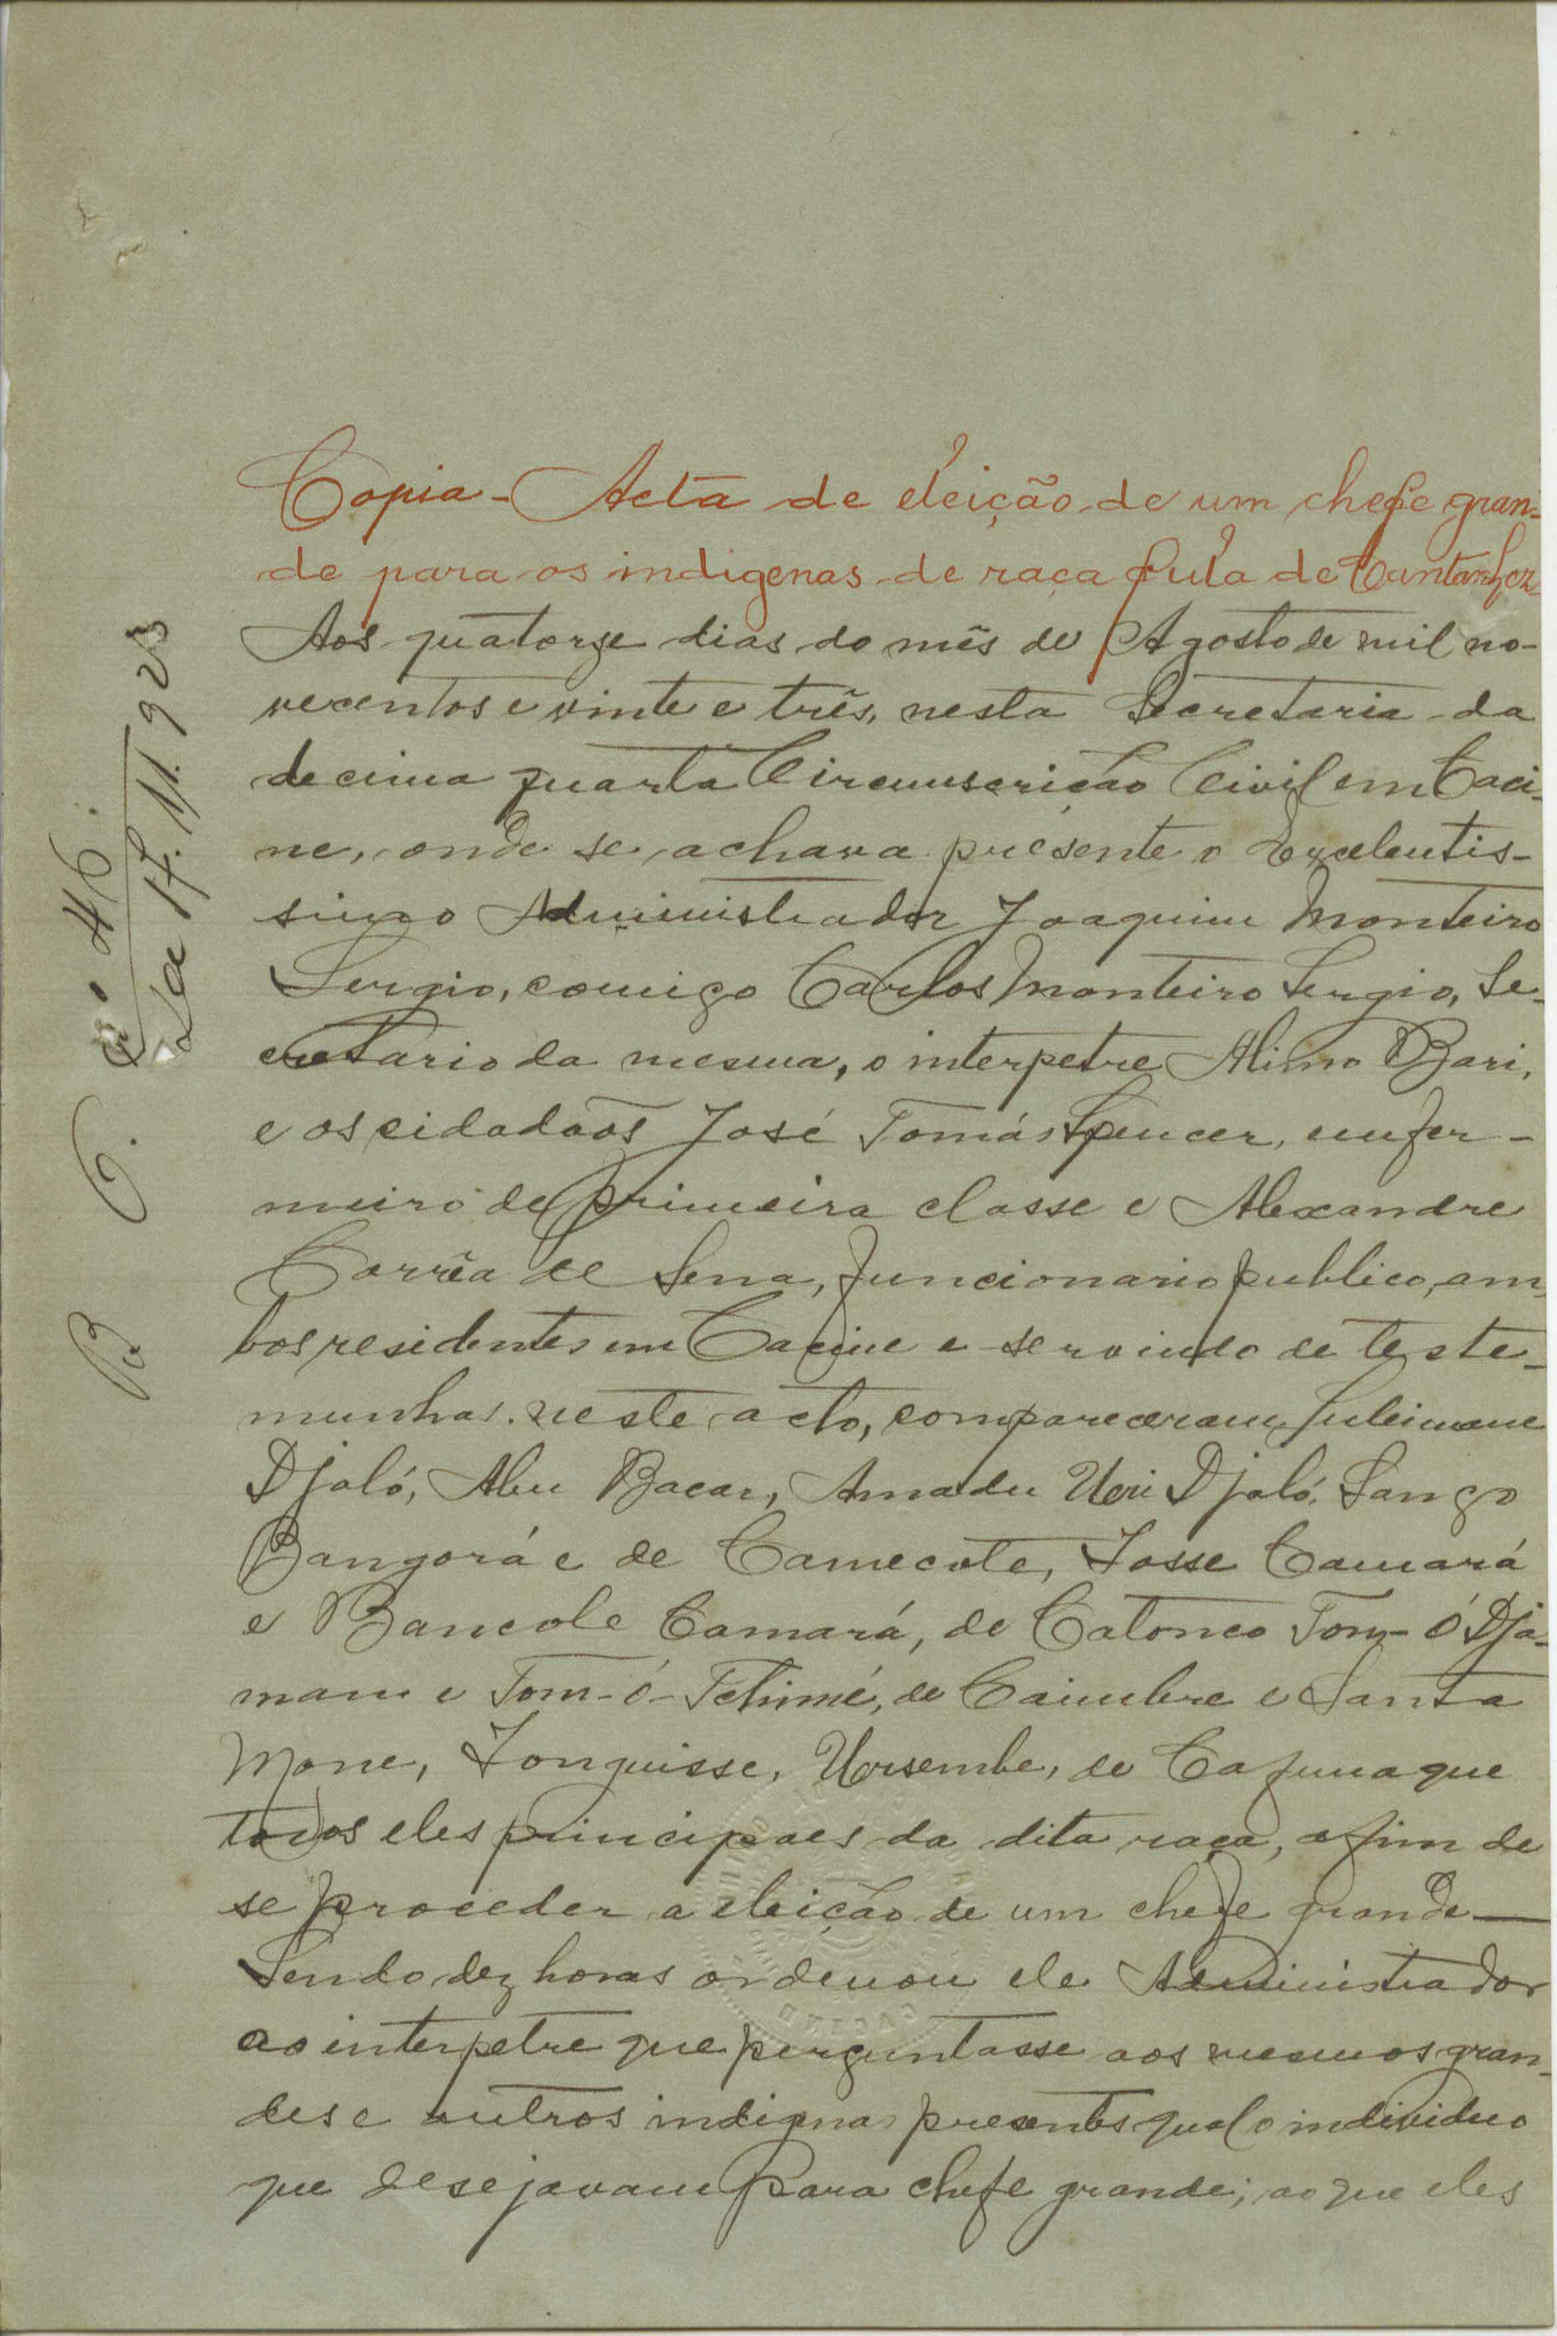 Copia - Acta de eleição de um chefe gran-
de para os indigenas de raça fula de Cantanhez
Aos quatorze dias do mês de Agosto de mil no-
vecentos e vinte e três, nesta Secretaria da
decima quarta Circunscrição Civil em Caci-
ne, onde se achava presente o Excelentis-
simo Administrador Joaquim Monteiro
Sergio, comigo Carlos Monteiro Sergio, Se-
cretario da mesma, o interpetre Alimo Bari,
e os cidadãos José Tomás Spencer, enfer-
meiro de primeira classe e Alexandre
Corrêa de Sena, funcionario publico, am-
bos residentes em Cacine e servindo de teste-
munhas. neste acto, compareceram Suleimane
Djaló, Abu Bacar, Amadu Uri Djaló, Sango
Bangorá e de Camecote, Fosse Camará
e Bancole Camará, de Catonco Tom-Ó Dja-
mam e Tom-ó-Tchimé, de Caimbre e Santa
Mone, Fonguisse, Ursembe, de Cafunaque
todos eles principaes da dita raça, afim de
se proceder a eleição de um chefe grande
Sendo dez horas ordenou ele Administrador
ao interpetre que perguntasse aos mesmos gran-
des e outros indignas presentes qual o individuo
que desejavam para chefe grande; ao que eles
Nº 46.
14.11.923
B O.